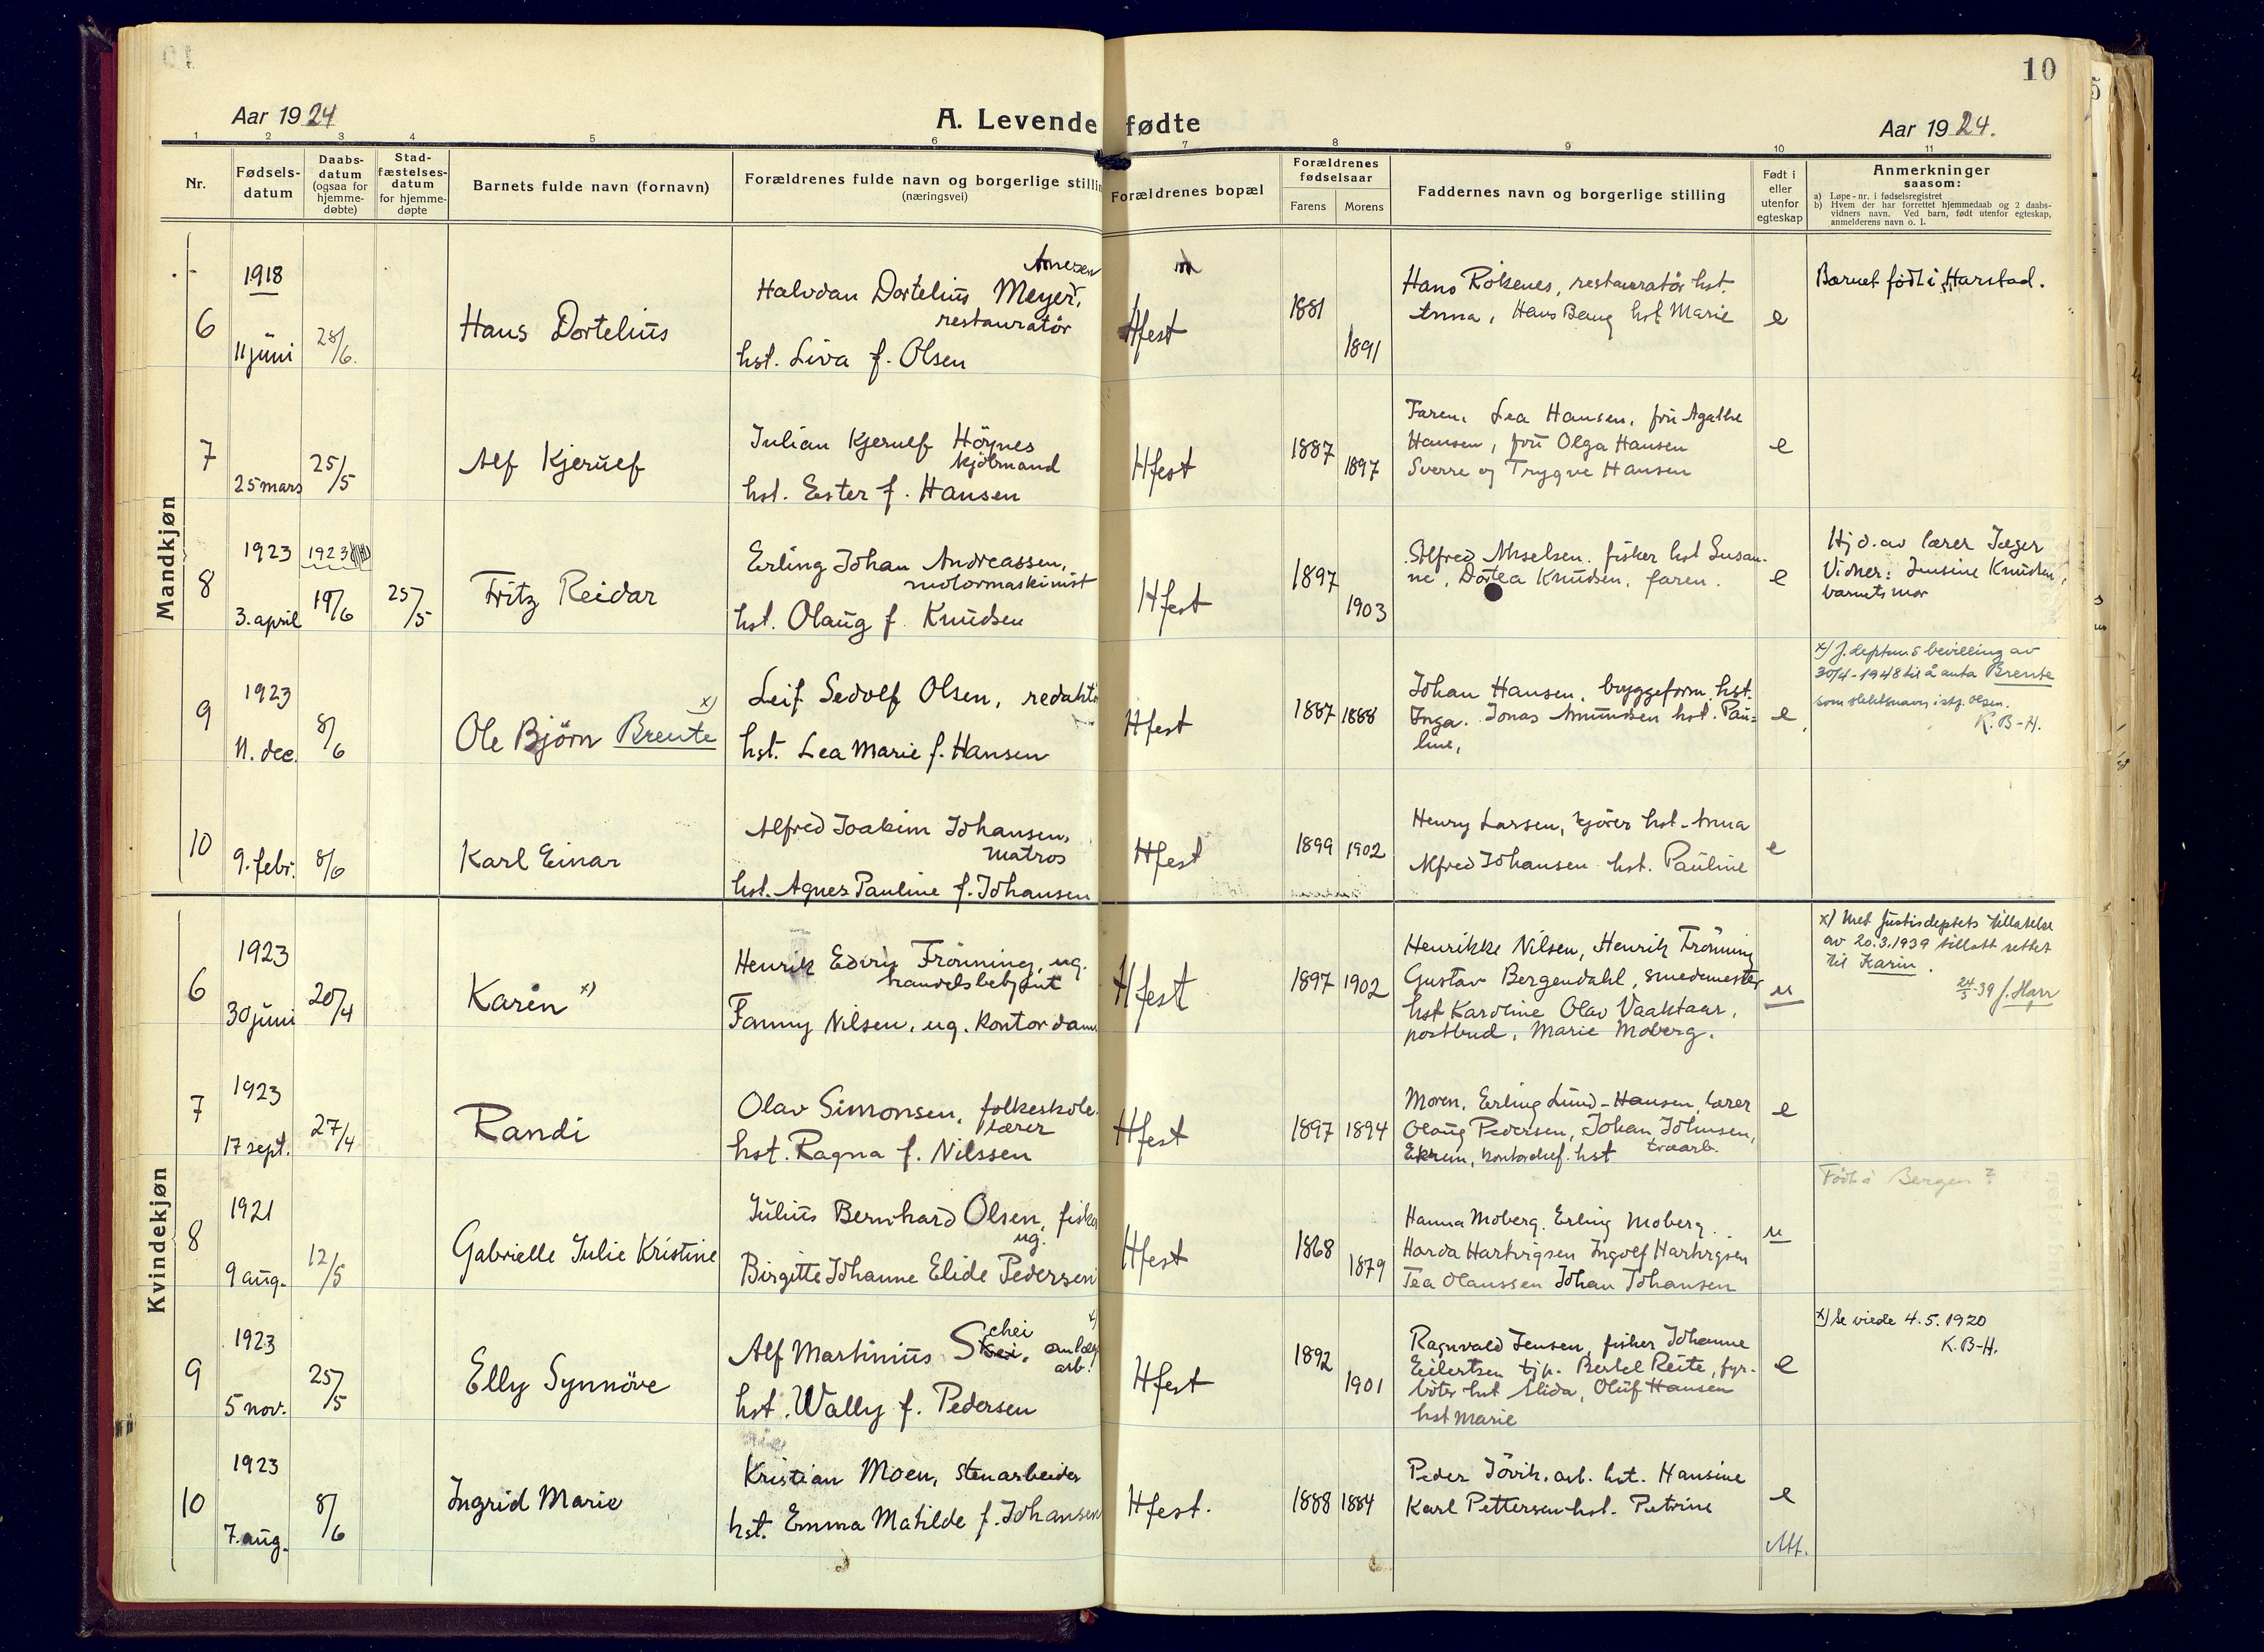 10
Aar 1924
A. Levende fødte
Aar 1924.
1 2 3 4 5 6 7 8 9 10 11
Nr.
Fødsels-
datum
Daabs-
datum
(ogsaa for
hjemme-
døbte)
Stad-
fæstelses-
datum
for hjemme-
døpte
Barnets fulde navn (fornavn)
Forældrenes fulde navn og borgerlige stillin
(næringsvei)
Forældrenes bopæl
Forældrenes
fødselsaar
Farens Morens
Faddernes navn og borgerlige stilling
Født i
eller
utenfor
egteskap
Anmerkninger
saasom:
a) Løpe-nr. i fødselsregistret
b) Hvem der har forrettet hjemmedaab og 2 daabs-
vidners navn. Ved barn, født utenfor egteskap,
anmelderens navn o. l.
Mandkjøn
6
1918
11 juni
28/6.
Hans Dortelius
Halvdan Dortelius Meyer,
restauratör
hst. Liva f. Olsen
Hfest
1881
1891
Hans Rölsenes, restauratör hst.
Anna, Hans Baug hst Marie
e
Barnet født i Harstad.
7
25 mars
25/5
Alf Kjerulf
Julian Kjerulf Höynes
kjöbmand
hst. Ester f. Hansen
Hfest
1887
1897
Faren, Lea Hansen, fru Agathe
Hansen, fru Olga Hansen
Sverre og Trygve Hansen
e
8
1923
3. april
1923
19/6
25/5
Fritz Reidar
Erling Johan Andreassen,
motormaskinist
hst. Olaug f. Knudsen
Hfest
1897
1903
Alfred Akselsen. fisker hst Susan-
ne, Dortea Knudsen, faren.
e
Hj d. av lærer Jæger
Vidner: Jensine Knudsen,
barnets mor
9
1923
11. dec.
8/6
Ole Björn Brente x)
Leif Sedolf Olsen, redaktö
hst. Lea Marie f. Hansen
Hfest
1887 1888
Johan Hansen, bryggeform. hst.
Inga. Jonas Amundsen hst. Pau-
line,
e
x) J. deptm s bevilling av
30/4-1948 til å anta Brente
som slektsnavn istf. Olsen.
K. B-H.
10
9. febr.
8/6
Karl Einar
Alfred Joakim Johansen,
Matros
hst. Agnes Pauline f. Johansen
Hfest
1899 1902
Henry Larsen, kjörer hst. Anna
Alfred Johansen hst. Pauline
e
Kvindekjøn
6
1923
30 juni
20/4
Karen x)
Henrik Edvin Frönning, ug.
handelsbetjent
Fanny Nilsen, ug. Kontordam
Hfest
1897 1902
Henrikke Nilsen, Henrik Frönning
Gustav Bergendahl, smedemester
hst Karoline Olav Vaaktaar,
postbud, Marie Moberg.
u
x) Met Justisdeptets tillatelse
av 20.3.1939 tillatt rettet
til Karin.
24/3-39 J. Harr
7
1923
17 sept.
27/4
Randi
Olav Simonsen, folkeskole
lærer
hst. Ragna f. Nilssen
Hfest
1897 1894
Moren, Erling Lund-Hansen, lærer
Olaug Pedersen, Johan Johnsen,
træarb.
Ekrem, kontorchef. hst
e
8
1921
9 aug.
12/5
Gabrielle Julie Kristine
Julius Bernhard Olsen, fiske
ug.
Birgitte Johanne Elide Pedersen
Hfest
1868
1879
Hanna Moberg. Erling Moberg.
Harda Hartvigsen Ingolf Hartvigsen
Tea Olaussen Johan Johansen
u
Født i Bergen?
9
1923
5 nov.
25/5
Elly Synnöve
Alf Martinius Skei, chei x)
arb.
hst. Wally f. Pedersen
Hfest
1892
1901
Ragnvald Jensen, fisker Johanne
Eilertsen tjp. Bertel Reite, fyr-
böter hst Elida, Oluf Hansen
hst Marie
e
x) Se viede 4.5.1920
K. B-H.
10
1923
7. aug.
8/6
Ingrid Marie
Kristian Moen, Stenarbeider
hst. Emma Matilde f. Johansen
Hfest.
1888 1884
Peder Jövik, arb. hst. Hansine
Karl Pettersen hst. Petrine
e